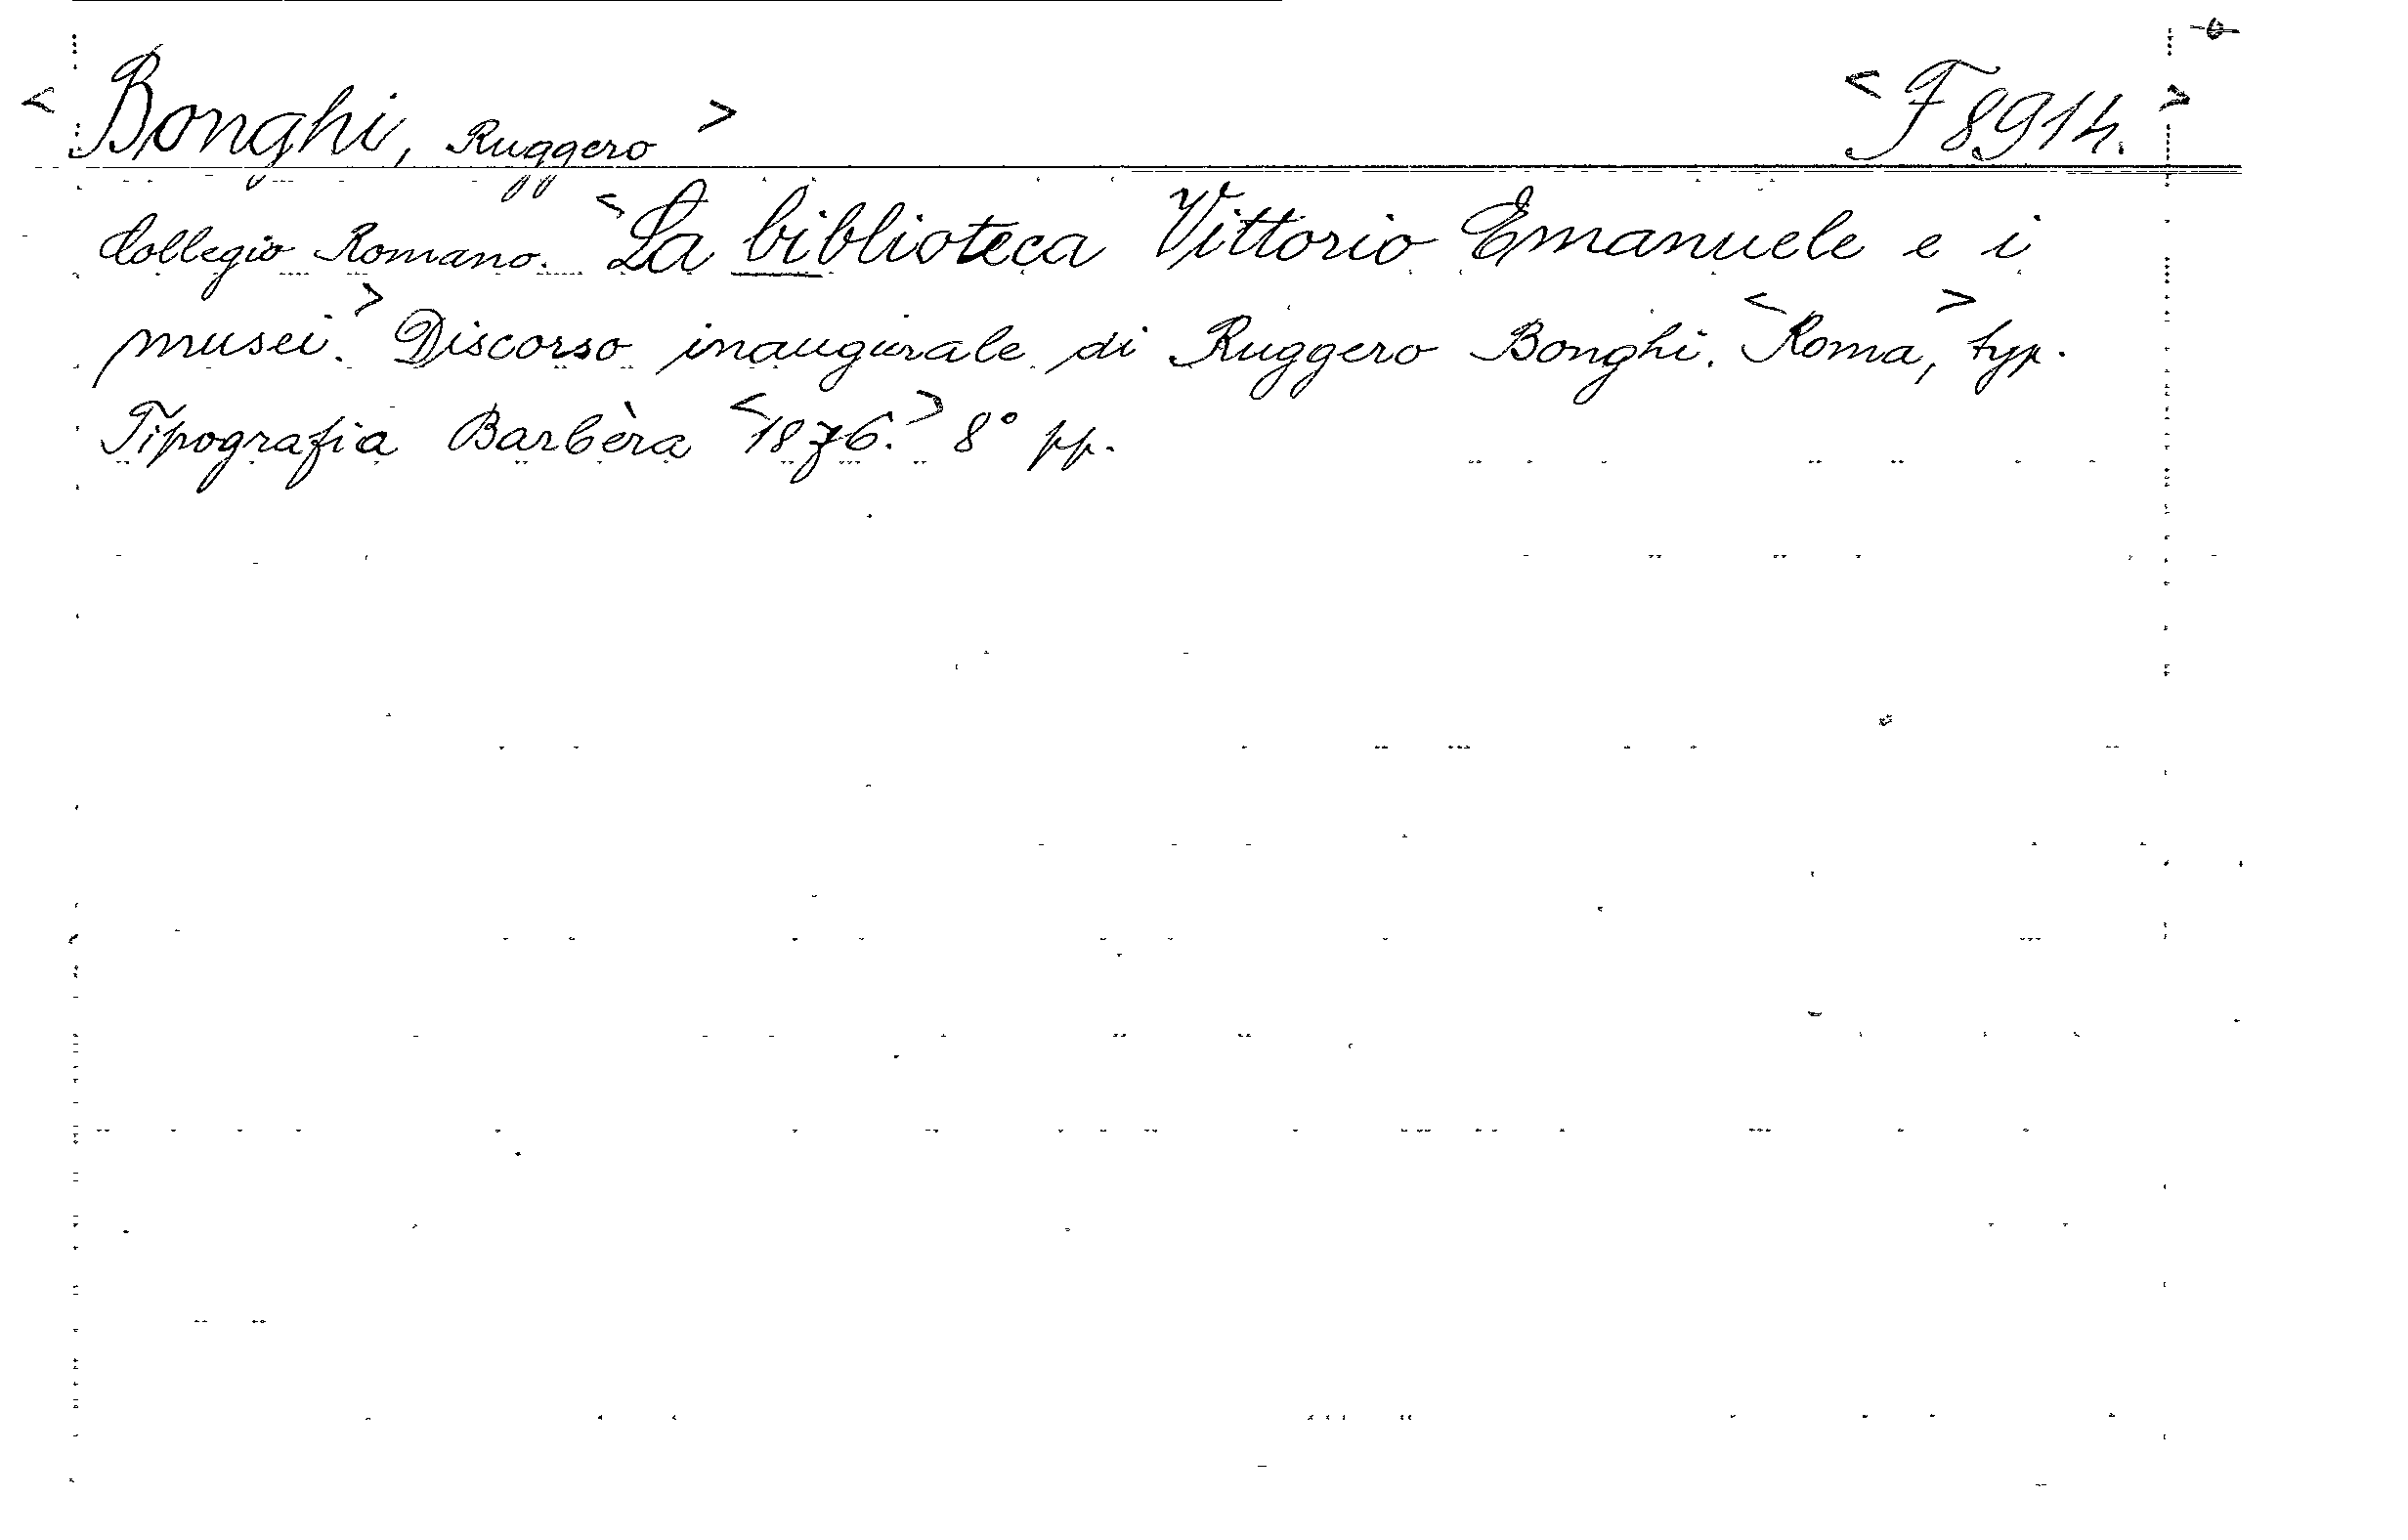 < Bonghi, Ruggero > < F 8914. >
Collegio Romano. < La biblioteca Vittorio Emanuele e i
musei. > Discorso inaugurale di Ruggero Bonghi. < Roma, > typ.
Tipografia Barbèra < 1876. > 8° pp.